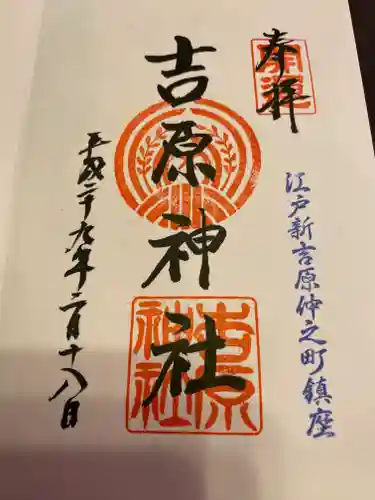 奉拝
江戸新吉原仲之町鎮座
吉原神社
吉原神社
平成二十九年二月十八日